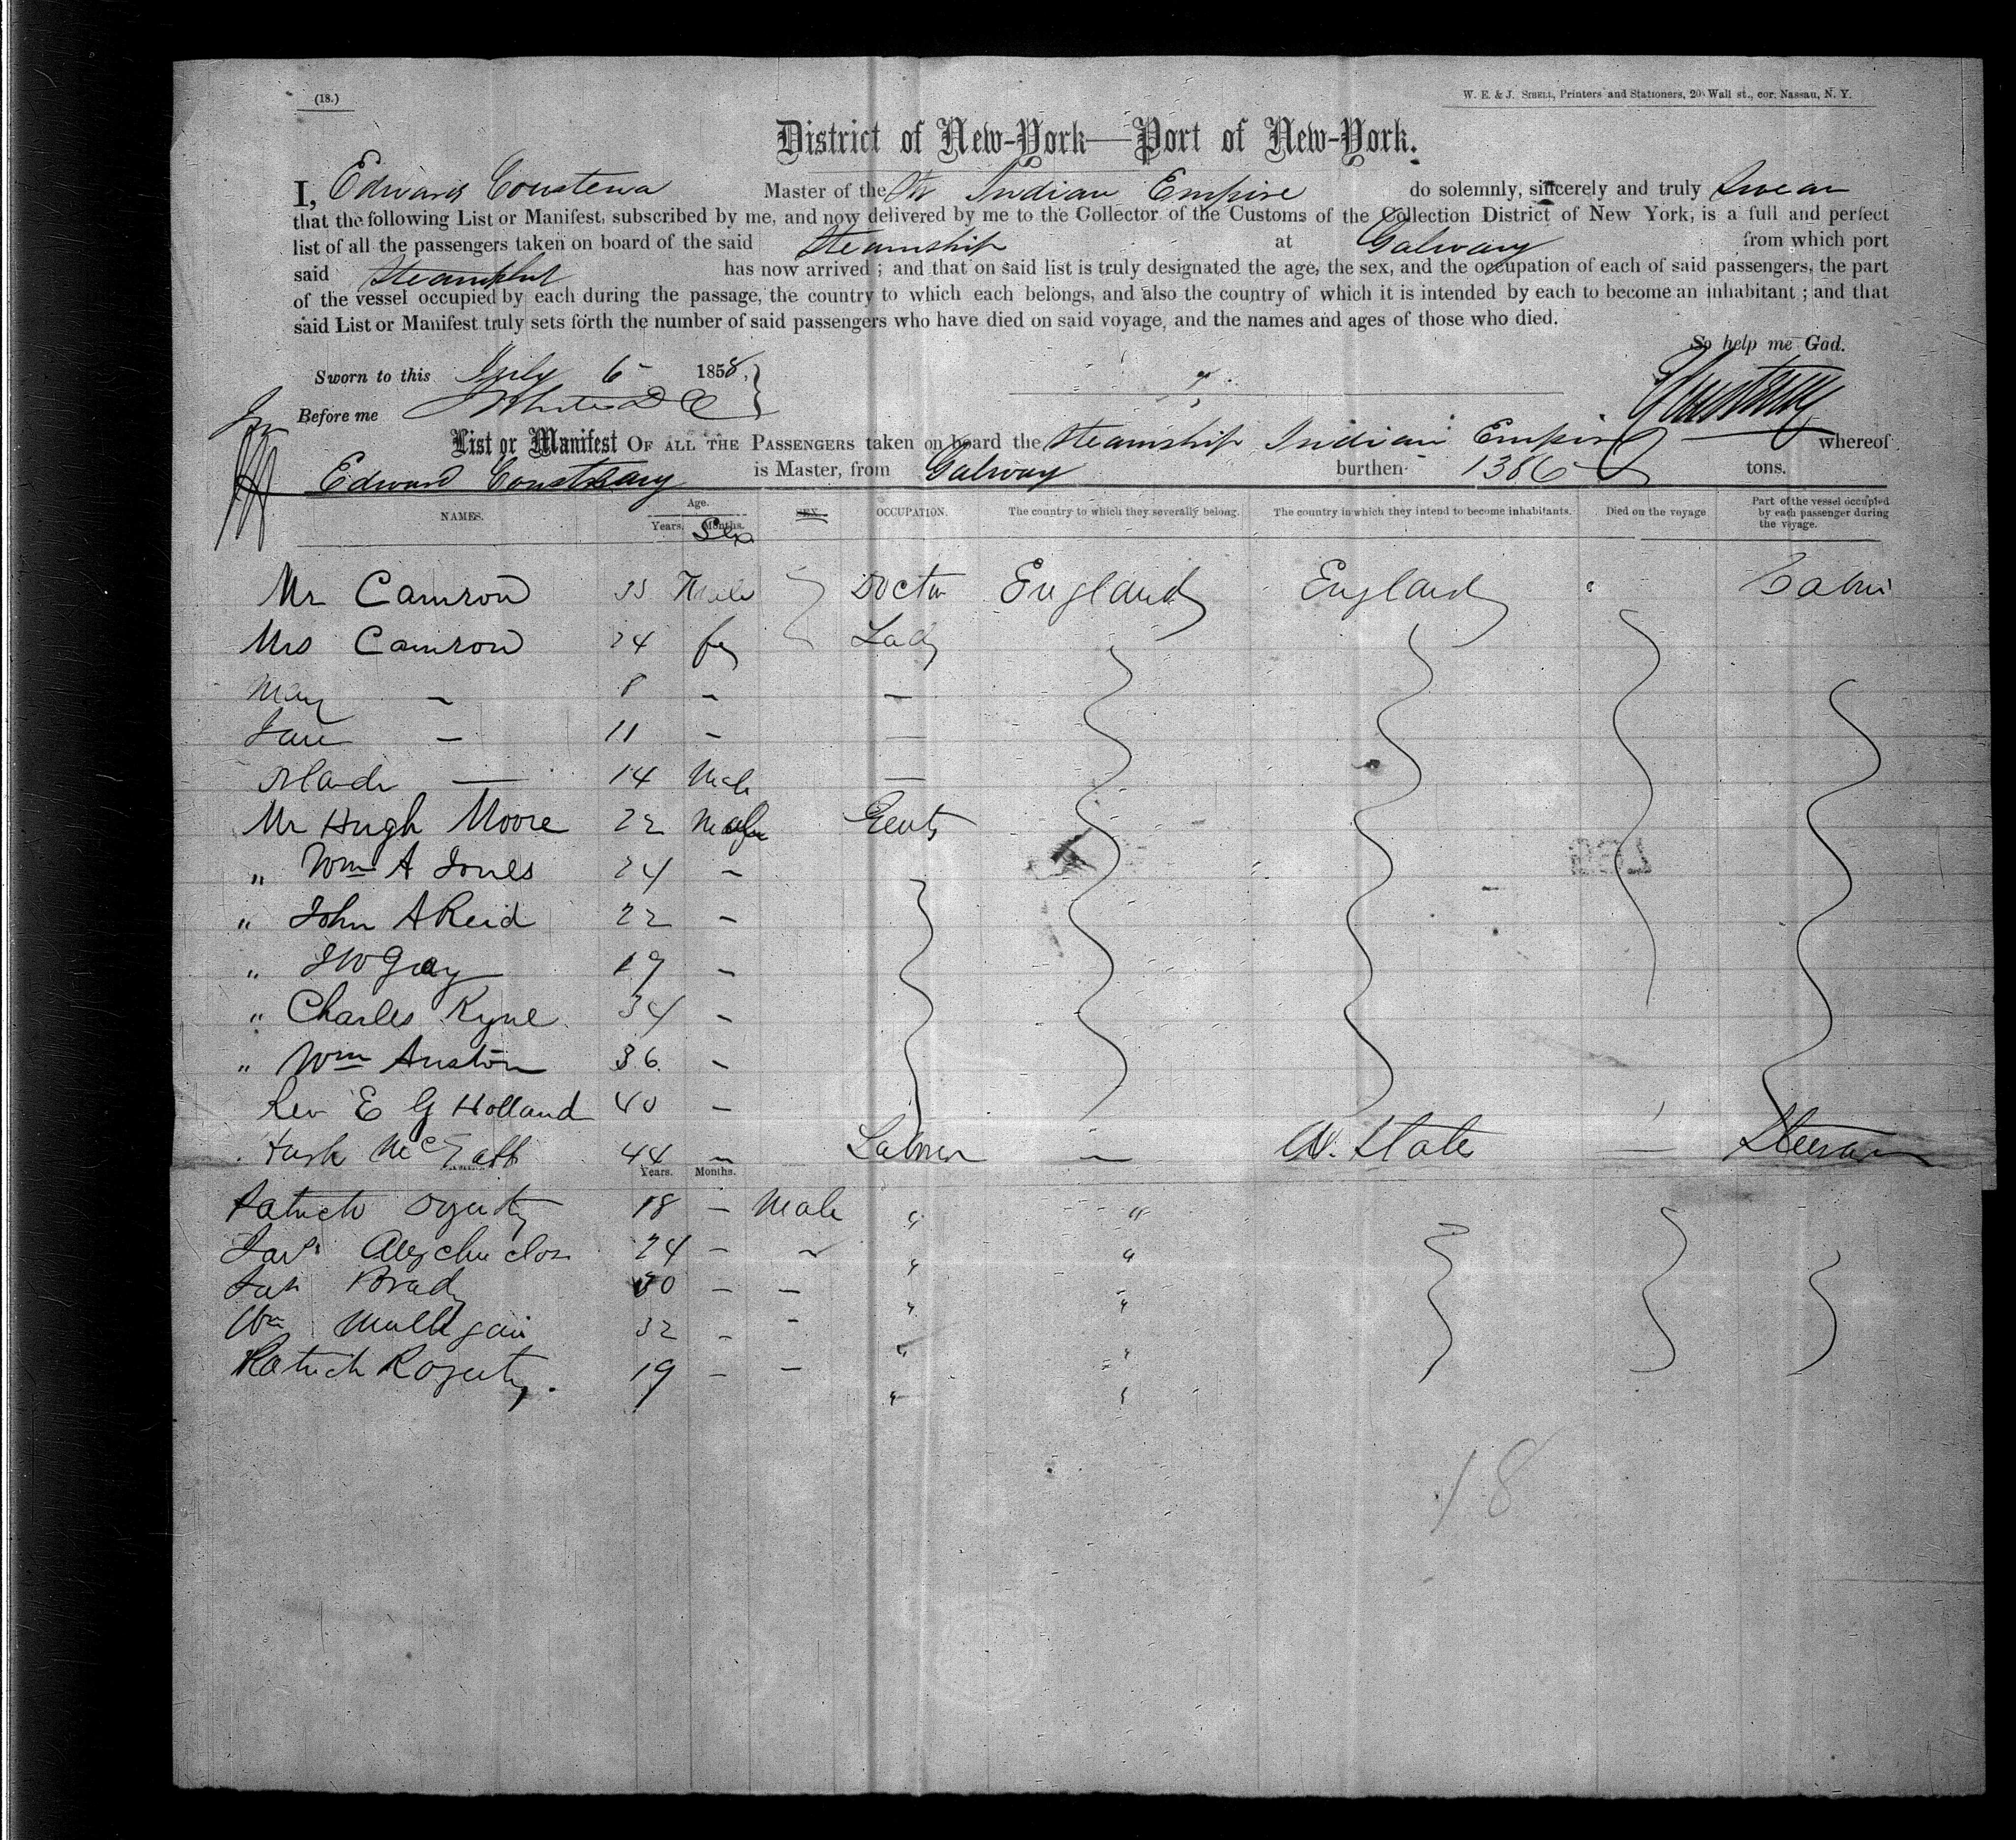 (18.)
W. E. & J. SIBELL, Printers and Stationers, 20 Wall st., cor. Nassau, N. Y.
District of New-York—Port of New-York.
I, Edward Master of the Indian Empire do solemnly, sincerely and truly swear
that the following List or Manifest, subscribed by me, and now delivered by me to the Collector of the Customs of the Collection District of New York, is a full and perfect
list of all the passengers taken on board of the said Steamship at Galway from which port
said Steamship has now arrived ; and that on said list is truly designated the age, the sex, and the occupation of each of said passengers, the part
of the vessel occupied by each during the passage, the country to which each belongs, and also the country of which it is intended by each to become an inhabitant ; and that
said List or Manifest truly sets forth the number of said passengers who have died on said voyage, and the names and ages of those who died.
So help me God.
Sworn to this July 6 1858,
Before me
List or Manifest OF ALL THE PASSENGERS taken on board the Steamship Indian Empire whereof
Edward is Master, from Galway burthen 1386 tons.
NAMES. Age. Years. Months. Sex SEX. OCCUPATION. The country to which they severally belong. The country in which they intend to become inhabitants. Died on the voyage Part of the vessel occupied by each passenger during the voyage.
Mr Camron 35 Male Doctor England England Cabin
Mrs Camron 24 fe Lady
May – 8 – –
Jane – 11 – –
– 14 Male –
Mr Hugh Moore 22 Male Gents
" Wm A Jones 24 –
" John A Reid 22 –
" J W Gray 19 –
" Charles Kyne 34 –
" Wm Auston 36 –
Rev E G Holland 40 –
44 – Labourer – U. State – Steerage
Years. Months.
Patrick 18 – Male " "
24 – – " "
Brady 30 – – " "
Wm Mulligan 32 – – " "
Patrick 19 – – " "
18